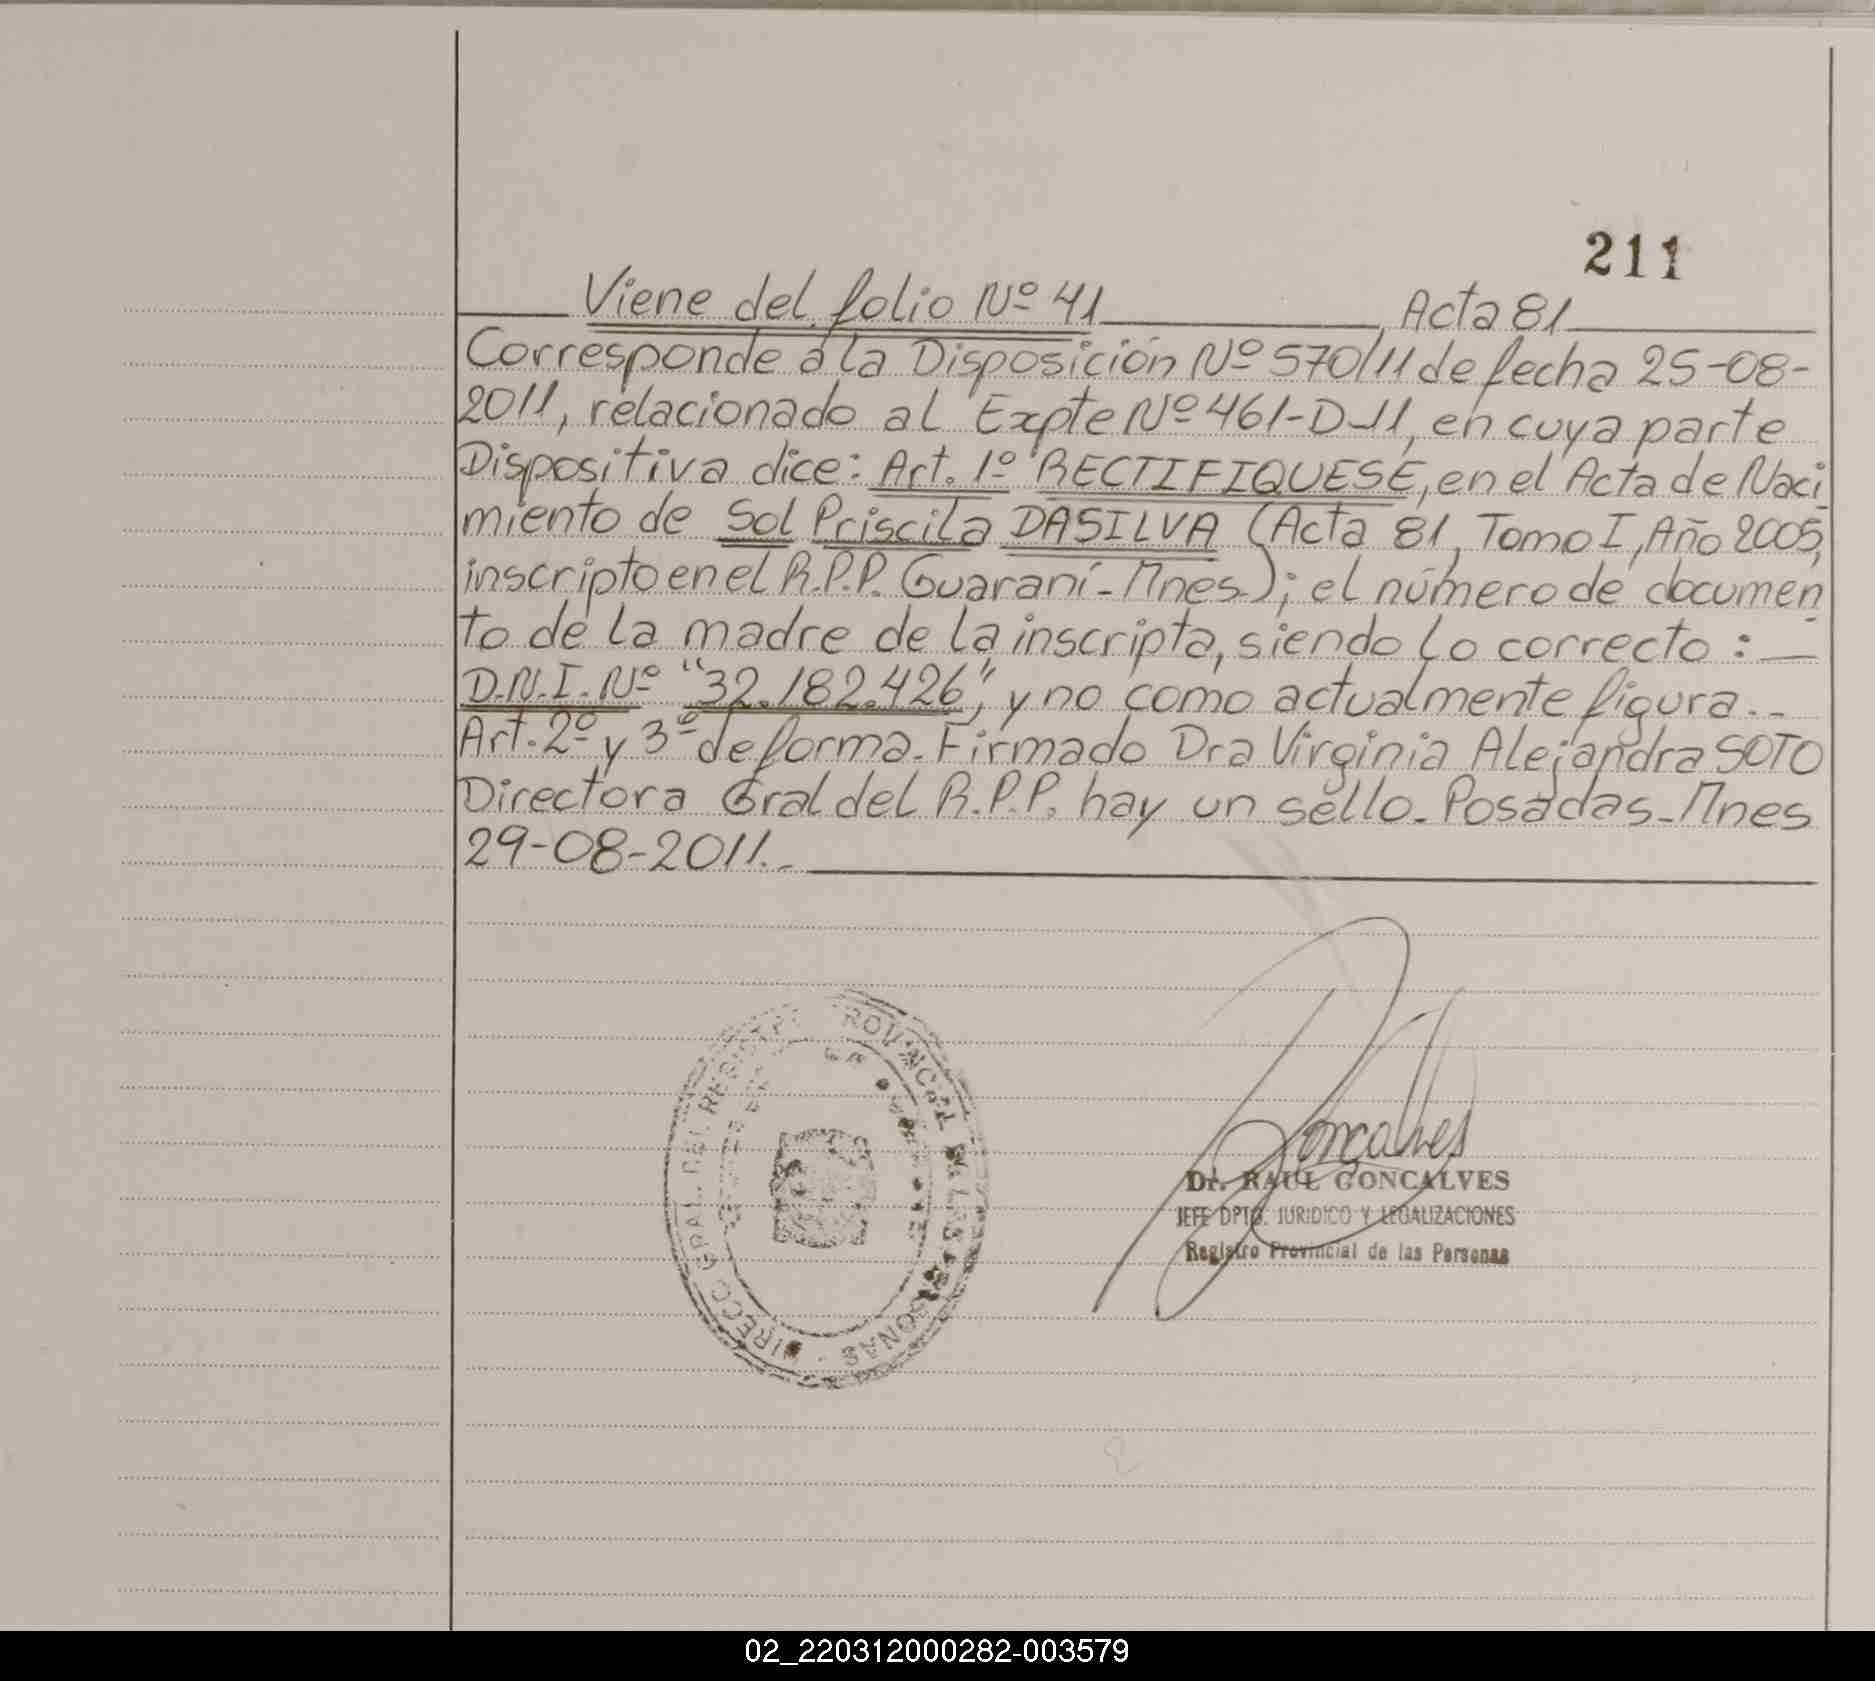 211
Viene del folio Nº 41 Acta 81
Corresponde a la Disposición Nº 570/11 de fecha 25-08-
2011, relacionado al Expte Nº 461-D-11, en cuya parte
Dispositiva dice: Art. 1º RECTIFIQUESE, en el Acta de Naci
miento de Sol Priscila DASILVA (Acta 81, Tomo I, Año 2005,
inscripto en el R.P.P. Guaraní - Mnes.); el número de documen
to de la madre de la inscripta, siendo lo correcto: —
D.N.I. Nº "32.182.426", y no como actualmente figura.-
Art. 2º y 3º de forma. Firmado Dra Virginia Alejandra SOTO
Directora Gral del R.P.P. hay un sello. Posadas - Mnes
29-08-2011.-
DIRECC GRAL. DEL REGISTRO PROVINCIAL DE LAS PERSONAS
Goncalves
Dr. RAUL GONCALVES
JEFE DPTO. JURIDICO Y LEGALIZACIONES
Registro Provincial de las Personas
02_220312000282-003579